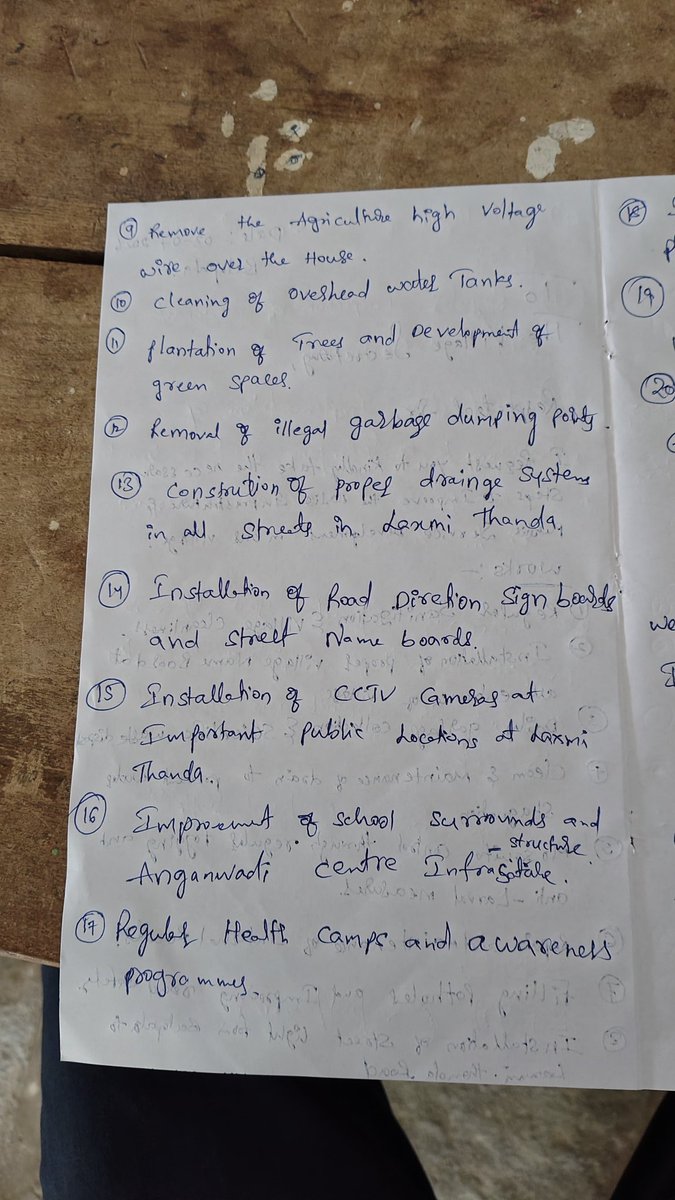 9 Remove the Agriculture high Voltage
wire over the House.
10 cleaning of overhead water Tanks.
11 plantation of Trees and Development of
green spaces.
12 Removal of illegal garbage dumping points.
13 Constrution of proper drainge systems
in all streets in Laxmi Thanda.
14 Installation of Road Diretion Sign boards
and street Name boards.
15 Installation of CCTV Cameras at
Important public Locations at Laxmi
Thanda.
16 Improvemut of school surrounds and
- structure
Anganwadi centre
17 Regular Health camps and awareness
programmes
18
19
20
we